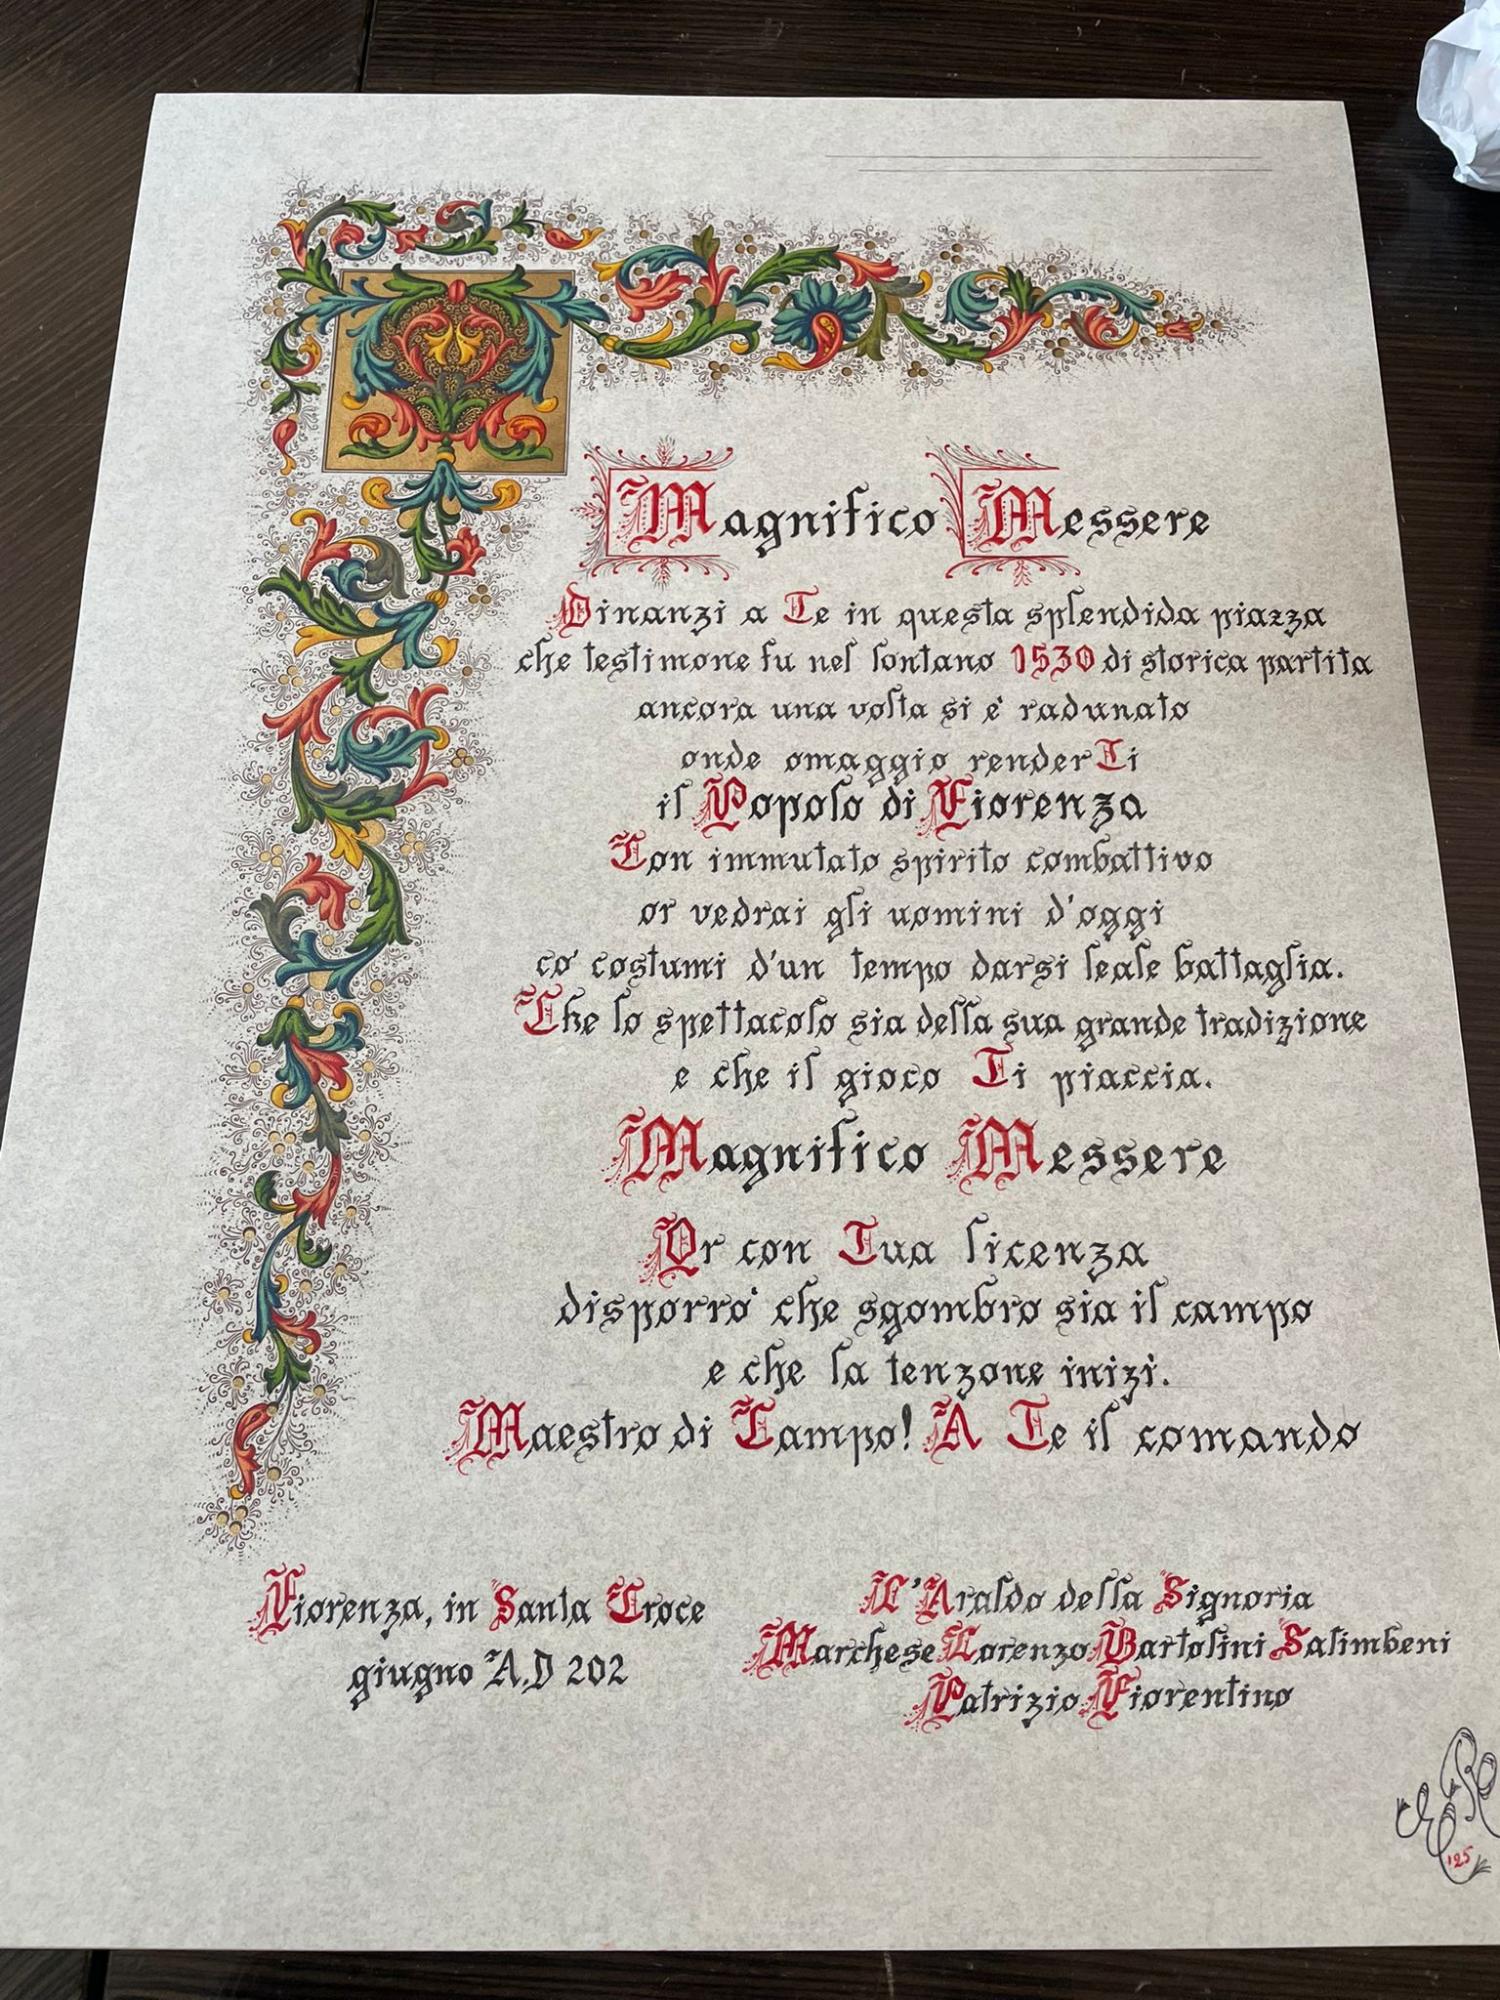 Magnifico Messere
Dinanzi a Te in questa splendida piazza
che testimone fu nel lontano 1530 di storica partita
ancora una volta si e' radunato
onde omaggio renderTi
il Popolo di Fiorenza
Con immutato spirito combattivo
or vedrai gli uomini d'oggi
co' costumi d'un tempo darsi leale battaglia.
Che lo spettacolo sia della sua grande tradizione
e che il gioco Ti piaccia.
Magnifico Messere
Or con Tua licenza
disporro' che sgombro sia il campo
e che la tenzone inizi.
Maestro di Campo! A Te il comando
Fiorenza, in Santa Croce
giugno A.D 202
L'Araldo della Signoria
Marchese Lorenzo Bartolini Salimbeni
Patrizio Fiorentino
'25